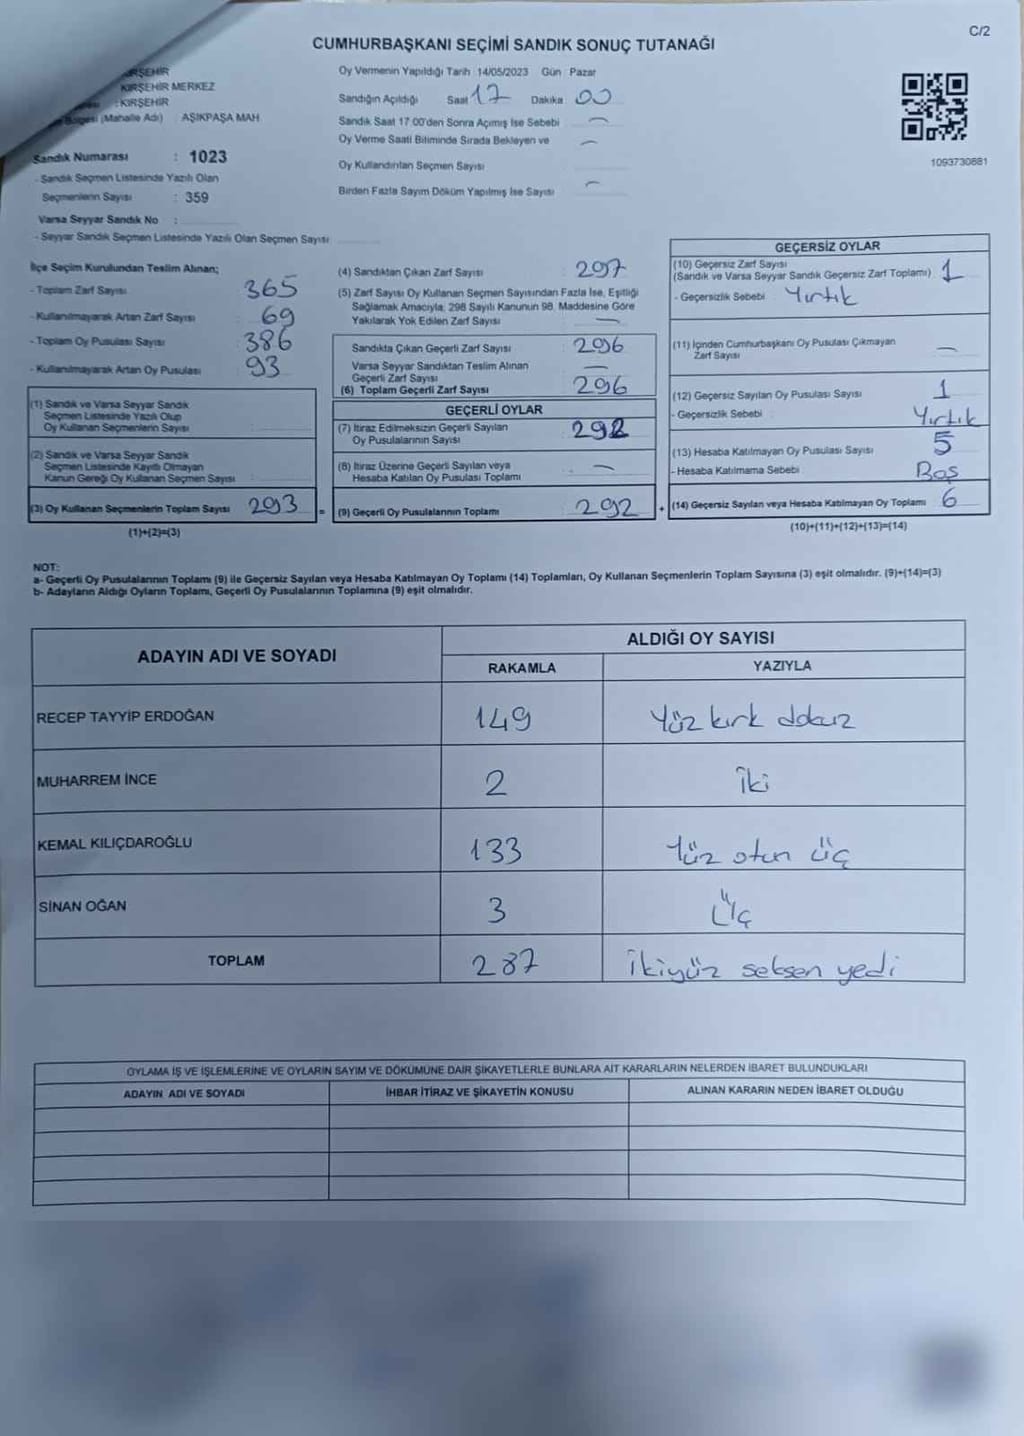 C/2
CUMHURBAŞKANI SEÇİMİ SANDIK SONUÇ TUTANAĞI
KIRŞEHİR
KIRŞEHİR MERKEZ
: KIRŞEHİR
(Mahalle Adı) AŞIKPAŞA MAH.
Sandık Numarası : 1023
- Sandık Seçmen Listesinde Yazılı Olan
Seçmenlerin Sayısı : 359
Varsa Seyyar Sandık No :
- Seyyar Sandık Seçmen Listesinde Yazılı Olan Seçmen Sayısı
Oy Vermenin Yapıldığı Tarih 14/05/2023 Gün Pazar
Sandığın Açıldığı Saat 17 Dakika 00
Sandık Saat 17 00'den Sonra Açımış İse Sebebi —
Oy Verme Saati Bitiminde Sırada Bekleyen ve —
Oy Kullandırılan Seçmen Sayısı
Birden Fazla Sayım Döküm Yapılmış İse Sayısı —
1093730881
İlçe Seçim Kurulundan Teslim Alınan;
- Toplam Zarf Sayısı 365
- Kullanılmayarak Artan Zarf Sayısı 69
- Toplam Oy Pusulası Sayısı 386
- Kullanılmayarak Artan Oy Pusulası 93
(1) Sandık ve Varsa Seyyar Sandık
Seçmen Listesinde Yazılı Olup
Oy Kullanan Seçmenlerin Sayısı
(2) Sandık ve Varsa Seyyar Sandık
Seçmen Listesinde Kayıtlı Olmayan
Kanun Gereği Oy Kullanan Seçmen Sayısı
(3) Oy Kullanan Seçmenlerin Toplam Sayısı 293 =
(1)+(2)=(3)
(4) Sandıktan Çıkan Zarf Sayısı : 297
(5) Zarf Sayısı Oy Kullanan Seçmen Sayısından Fazla İse, Eşitliği
Sağlamak Amacıyla; 298 Sayılı Kanunun 98. Maddesine Göre
Yakılarak Yok Edilen Zarf Sayısı —
Sandıkta Çıkan Geçerli Zarf Sayısı : 296
Varsa Seyyar Sandıktan Teslim Alınan —
Geçerli Zarf Sayısı
(6) Toplam Geçerli Zarf Sayısı 296
GEÇERLİ OYLAR
(7) İtiraz Edilmeksizin Geçerli Sayılan 292
Oy Pusulalarının Sayısı
(8) İtiraz Üzerine Geçerli Sayılan veya —
Hesaba Katılan Oy Pusulası Toplamı
(9) Geçerli Oy Pusulalarının Toplamı : 292 +
GEÇERSİZ OYLAR
(10) Geçersiz Zarf Sayısı
(Sandık ve Varsa Seyyar Sandık Geçersiz Zarf Toplamı) 1
- Geçersizlik Sebebi Yırtık
(11) İçinden Cumhurbaşkanı Oy Pusulası Çıkmayan —
Zarf Sayısı
(12) Geçersiz Sayılan Oy Pusulası Sayısı 1
- Geçersizlik Sebebi : Yırtık
(13) Hesaba Katılmayan Oy Pusulası Sayısı 5
- Hesaba Katılmama Sebebi Boş
(14) Geçersiz Sayılan veya Hesaba Katılmayan Oy Toplamı 6
(10)+(11)+(12)+(13)=(14)
NOT:
a- Geçerli Oy Pusulalarının Toplamı (9) ile Geçersiz Sayılan veya Hesaba Katılmayan Oy Toplamı (14) Toplamları, Oy Kullanan Seçmenlerin Toplam Sayısına (3) eşit olmalıdır. (9)+(14)=(3)
b- Adayların Aldığı Oyların Toplamı, Geçerli Oy Pusulalarının Toplamına (9) eşit olmalıdır.
ADAYIN ADI VE SOYADI ALDIĞI OY SAYISI
RAKAMLA YAZIYLA
RECEP TAYYİP ERDOĞAN 149 Yüz kırk dokuz
MUHARREM İNCE 2 İki
KEMAL KILIÇDAROĞLU 133 Yüz otuz üç
SİNAN OĞAN 3 Üç
TOPLAM 287 İkiyüz seksen yedi
OYLAMA İŞ VE İŞLEMLERİNE VE OYLARIN SAYIM VE DÖKÜMÜNE DAİR ŞİKAYETLERLE BUNLARA AİT KARARLARIN NELERDEN İBARET BULUNDUKLARI
ADAYIN ADI VE SOYADI İHBAR İTİRAZ VE ŞİKAYETİN KONUSU ALINAN KARARIN NEDEN İBARET OLDUĞU